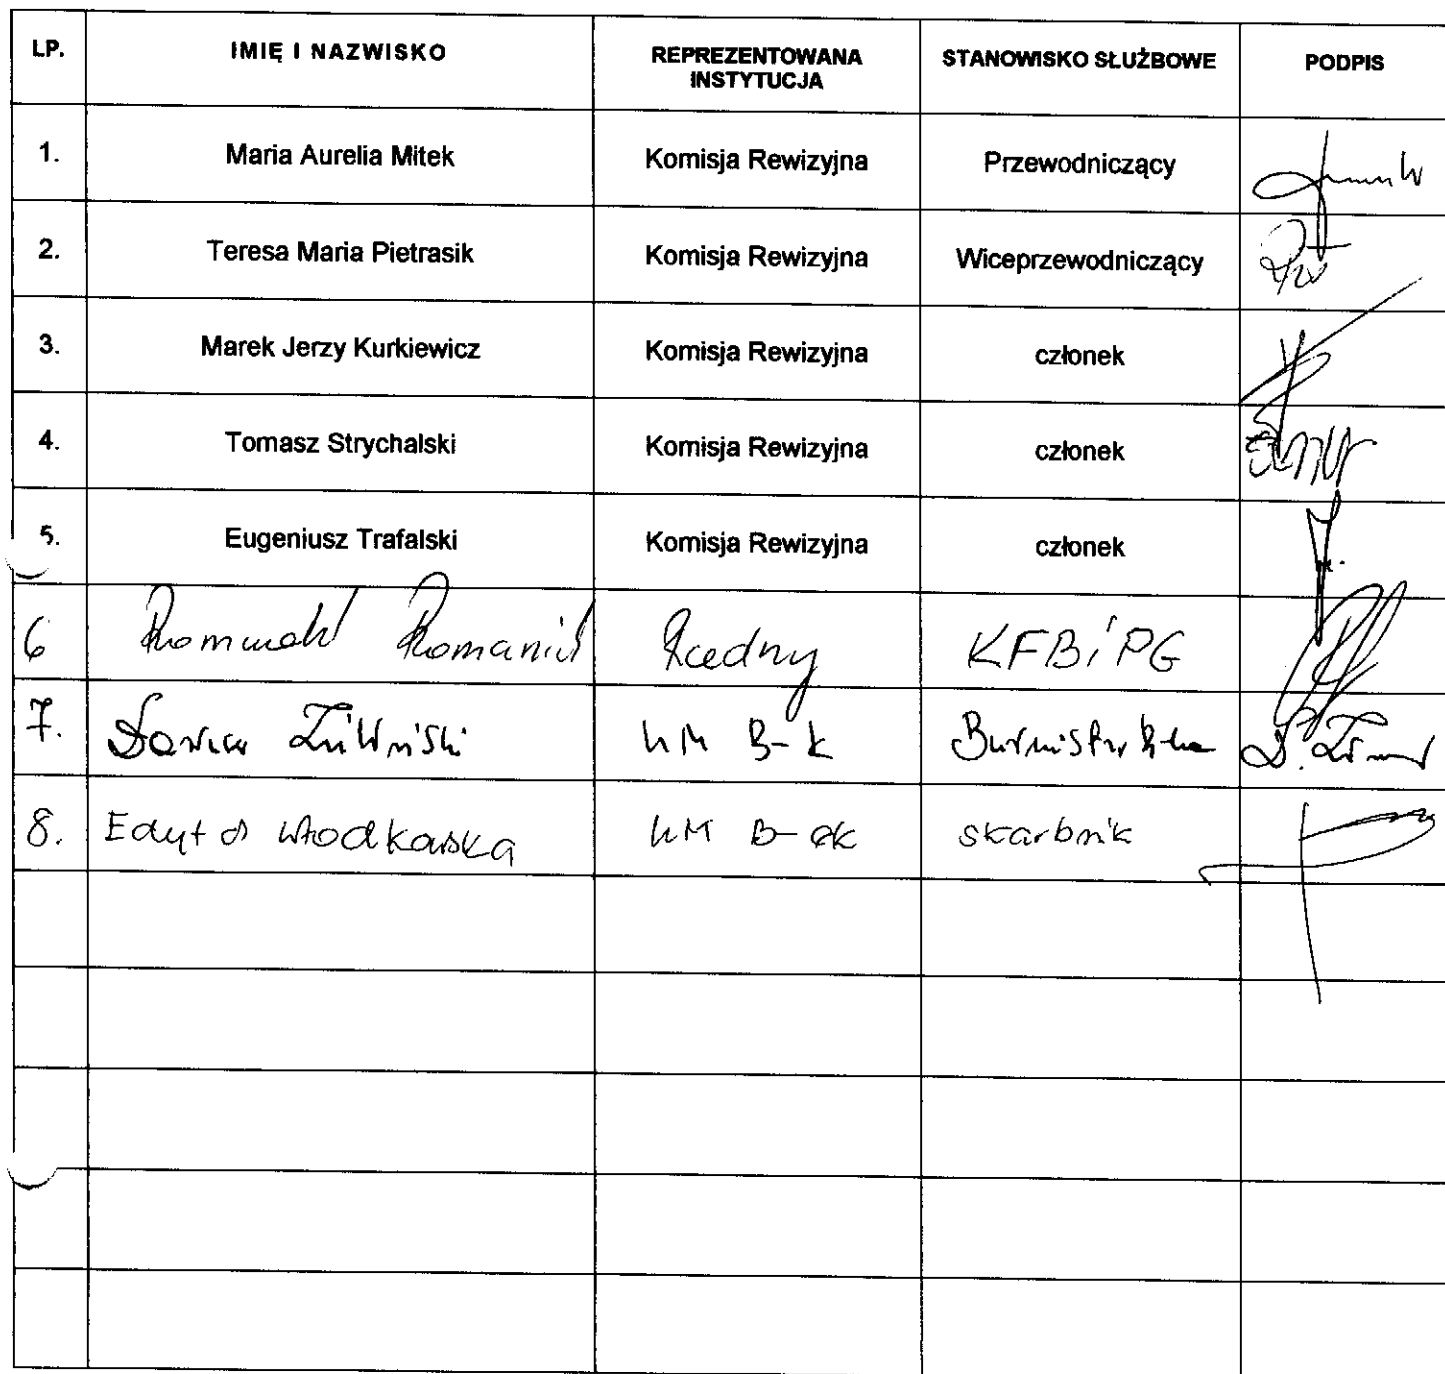 LP. IMIĘ I NAZWISKO REPREZENTOWANA INSTYTUCJA STANOWISKO SŁUŻBOWE PODPIS
1. Maria Aurelia Mitek Komisja Rewizyjna Przewodniczący
2. Teresa Maria Pietrasik Komisja Rewizyjna Wiceprzewodniczący
3. Marek Jerzy Kurkiewicz Komisja Rewizyjna członek
4. Tomasz Strychalski Komisja Rewizyjna członek
5. Eugeniusz Trafalski Komisja Rewizyjna członek
6 Romuald Romaniuk Radny KFBiPG
7. UM B-k Burmistrz
8. Edyta UM skarbnik